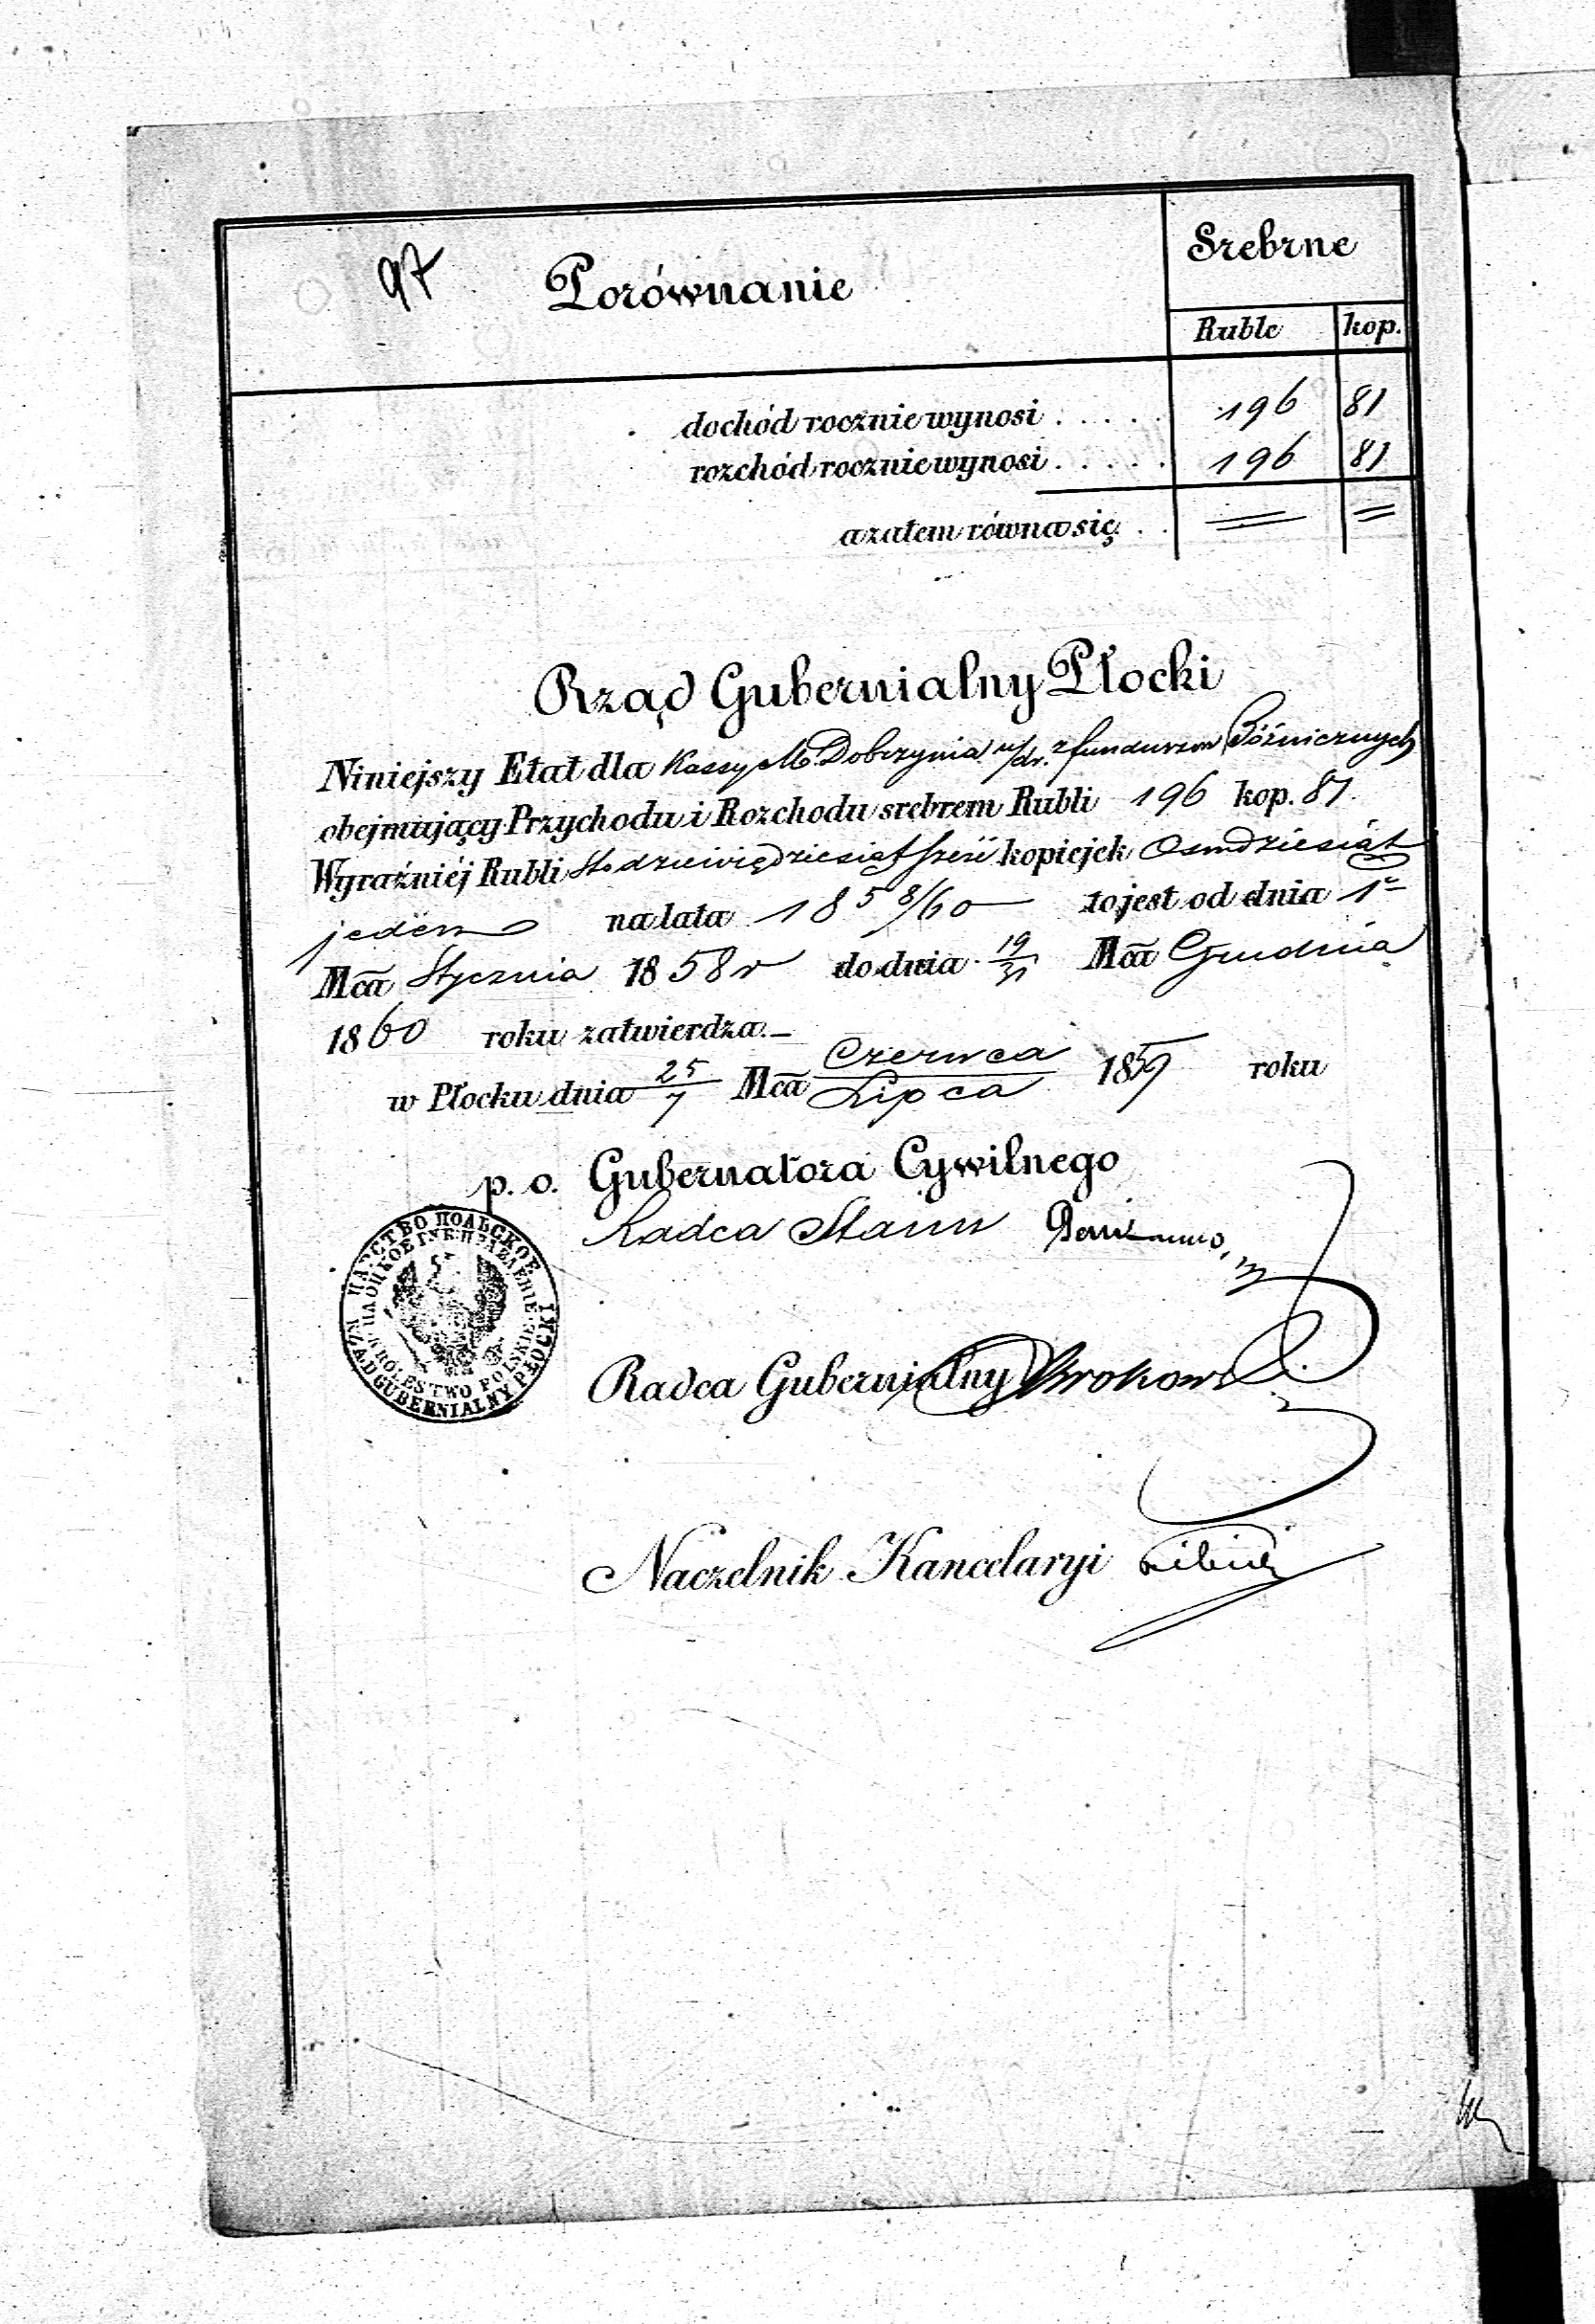 97
Porównanie
Srebrne
Ruble kop.
dochód rocznie wynosi . . . . . 196 81
rozchód rocznie wynosi . . . . . 196 81
a zatem równa się . . = =
Rząd Gubernialny Płocki
Niniejszy Etat dla Kassy M. Dobrzynia n/dr. z funduszów Bóźnicznych
obejmujący Przychodu i Rozchodu srebrem Rubli 196 kop. 81.
Wyraźniéj Rubli Sto dziewiędziesiąt sześć kopiejek Osmdziesiąt
jeden na lata 1858/60 to jest od dnia 1
Mca Stycznia 1858 r do dnia 19/31 Mca Grudnia
1860 roku zatwierdza.
w Płocku dnia 25/7 Mca Czerwca/Lipca 1859 roku
p. o. Gubernatora Cywilnego
Radca Stanu
ЦАРСТВО ПОЛЬСКОЕ
ПЛОЦКОЕ ГУБ: ПРАВЛЕНІЕ
KRÓLESTWO POLSKIE
RZĄD GUBERNIALNY PŁOCKI
Radca Gubernialny
Naczelnik Kancelaryi